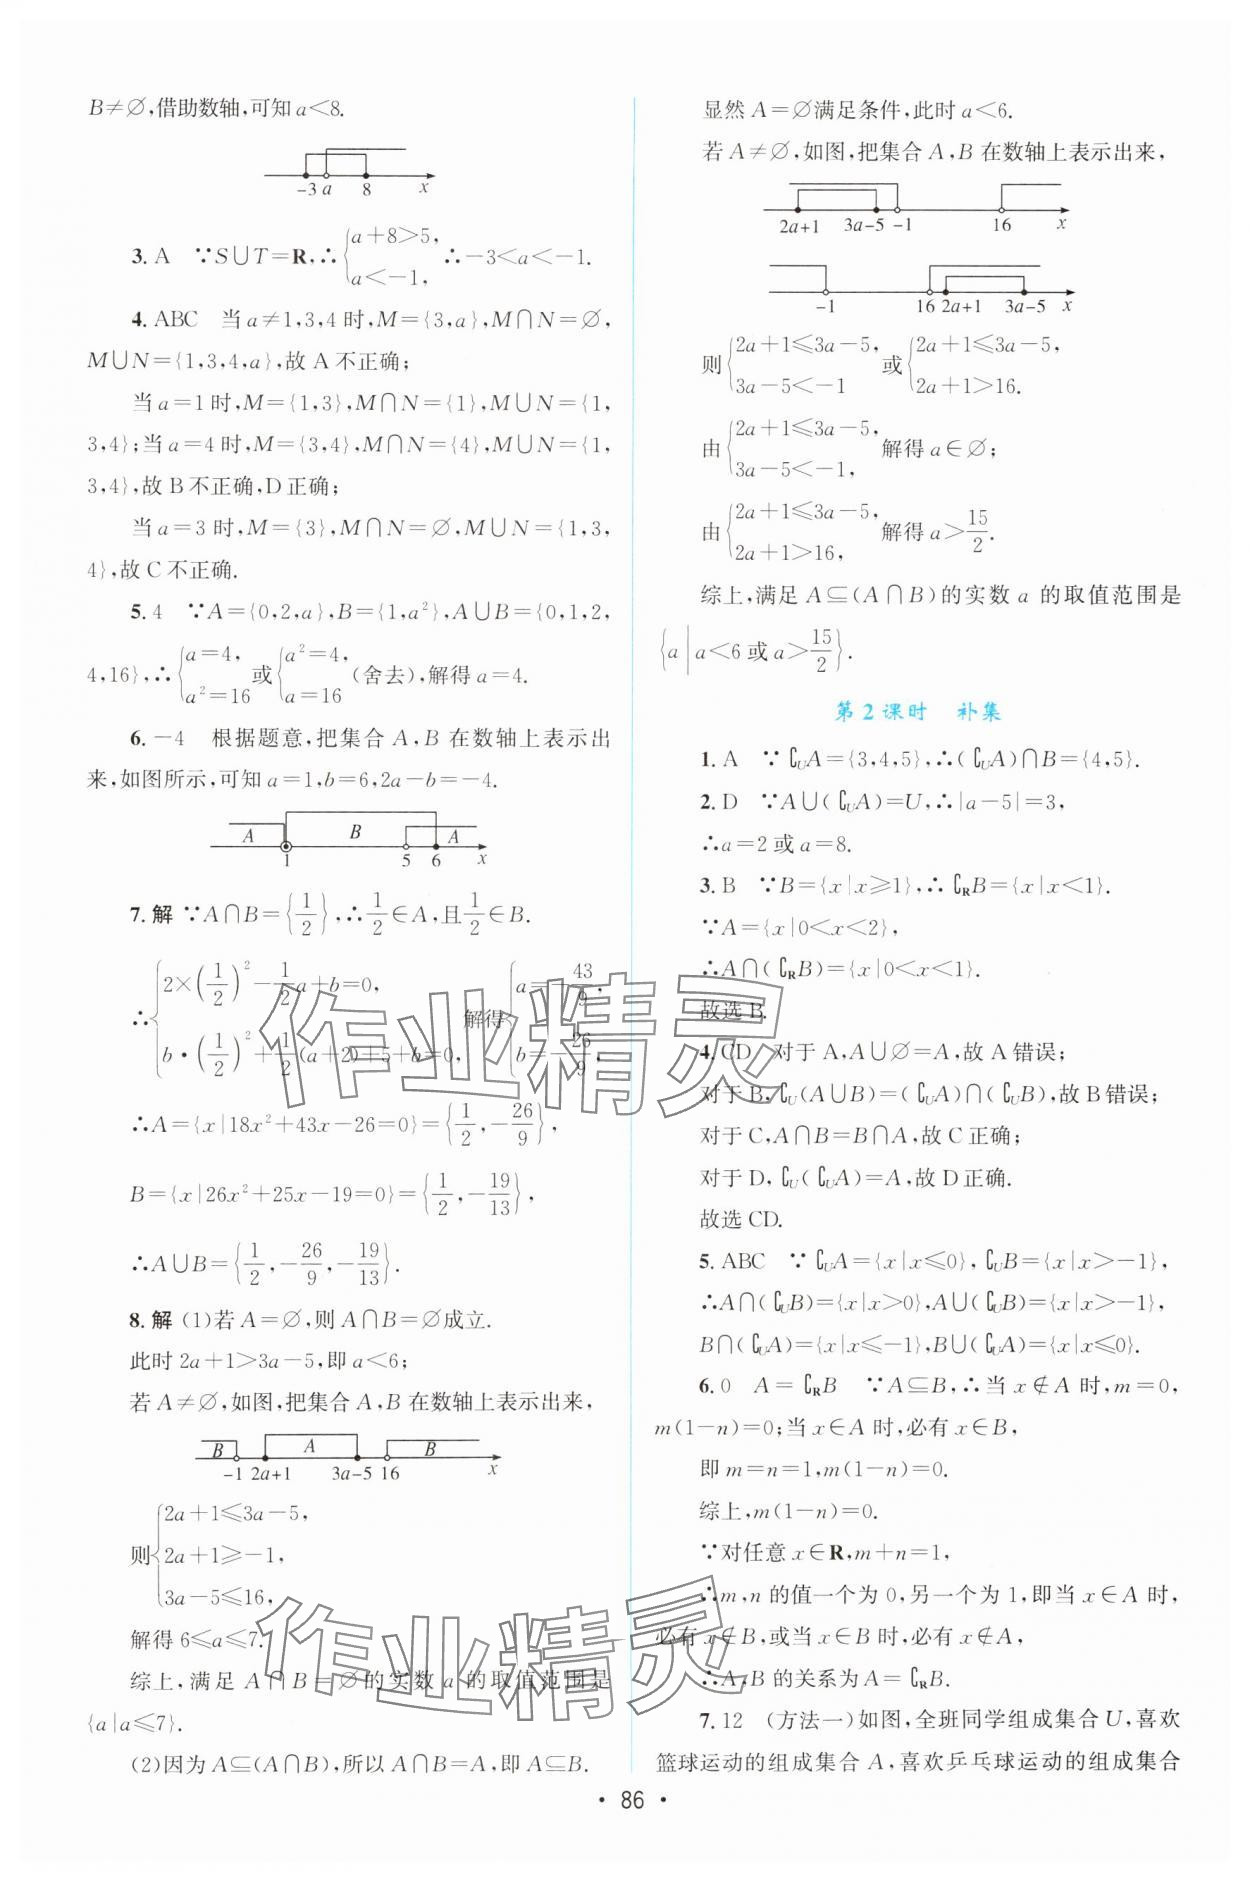 B≠∅,借助数轴,可知a<8.
-3 a 8 x
3. A ∵S∪T=R,∴{a+8>5, a<-1, ∴-3<a<-1.
4. ABC 当a≠1,3,4时,M={3,a},M∩N=∅,
M∪N={1,3,4,a},故A不正确;
当a=1时,M={1,3},M∩N={1},M∪N={1,
3,4};当a=4时,M={3,4},M∩N={4},M∪N={1,
3,4},故B不正确,D正确;
当a=3时,M={3},M∩N=∅,M∪N={1,3,
4},故C不正确.
5. 4 ∵A={0,2,a},B={1,a²},A∪B={0,1,2,
4,16},∴{a=4, a²=16 或{a²=4, a=16 (舍去),解得a=4.
6. -4 根据题意,把集合A,B在数轴上表示出
来,如图所示,可知a=1,b=6,2a-b=-4.
A B A
1 5 6 x
7. 解 ∵A∩B={1/2},∴1/2∈A,且1/2∈B.
∴{2×(1/2)²-1/2a+b=0, b·(1/2)²+1/2(a+2)+5+b=0, 解得{a=-43/9, b=-26/9,
∴A={x|18x²+43x-26=0}={1/2,-26/9},
B={x|26x²+25x-19=0}={1/2,-19/13},
∴A∪B={1/2,-26/9,-19/13}.
8. 解 (1)若A=∅,则A∩B=∅成立.
此时2a+1>3a-5,即a<6;
若A≠∅,如图,把集合A,B在数轴上表示出来,
B A B
-1 2a+1 3a-5 16 x
则{2a+1≤3a-5, 2a+1≥-1, 3a-5≤16,
解得6≤a≤7.
综上,满足A∩B=∅的实数a的取值范围是
{a|a≤7}.
(2)因为A⊆(A∩B),所以A∩B=A,即A⊆B.
显然A=∅满足条件,此时a<6.
若A≠∅,如图,把集合A,B在数轴上表示出来,
2a+1 3a-5 -1 16 x
-1 16 2a+1 3a-5 x
则{2a+1≤3a-5, 3a-5<-1 或{2a+1≤3a-5, 2a+1>16.
由{2a+1≤3a-5, 3a-5<-1, 解得a∈∅;
由{2a+1≤3a-5, 2a+1>16, 解得a>15/2.
综上,满足A⊆(A∩B)的实数a的取值范围是
{a|a<6或a>15/2}.
第2课时 补集
1. A ∵∁UA={3,4,5},∴(∁UA)∩B={4,5}.
2. D ∵A∪(∁UA)=U,∴|a-5|=3,
∴a=2或a=8.
3. B ∵B={x|x≥1},∴∁RB={x|x<1}.
∵A={x|0<x<2},
∴A∩(∁RB)={x|0<x<1}.
故选B.
4. CD 对于A,A∪∅=A,故A错误;
对于B,∁U(A∪B)=(∁UA)∩(∁UB),故B错误;
对于C,A∩B=B∩A,故C正确;
对于D,∁U(∁UA)=A,故D正确.
故选CD.
5. ABC ∵∁UA={x|x≤0},∁UB={x|x>-1},
∴A∩(∁UB)={x|x>0},A∪(∁UB)={x|x>-1},
B∩(∁UA)={x|x≤-1},B∪(∁UA)={x|x≤0}.
6. 0 A=∁RB ∵A⊆B,∴当x∉A时,m=0,
m(1-n)=0;当x∈A时,必有x∈B,
即m=n=1,m(1-n)=0.
综上,m(1-n)=0.
∵对任意x∈R,m+n=1,
∴m,n的值一个为0,另一个为1,即当x∈A时,
必有x∉B,或当x∈B时,必有x∉A,
∴A,B的关系为A=∁RB.
7. 12 (方法一)如图,全班同学组成集合U,喜欢
篮球运动的组成集合A,喜欢乒乓球运动的组成集合
·86·
作业精灵
作业精灵